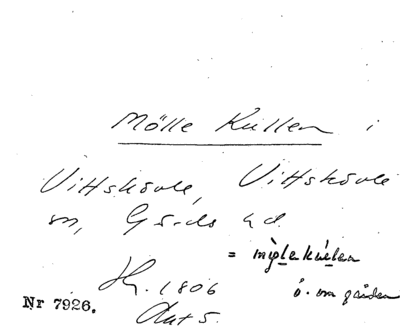 Mölle Kullen i
Vittskövle, Vittskövle
sn, Gärds hd.
= 
Hy. 1806
ö. om gården
Nr 7926.
Akt 5.